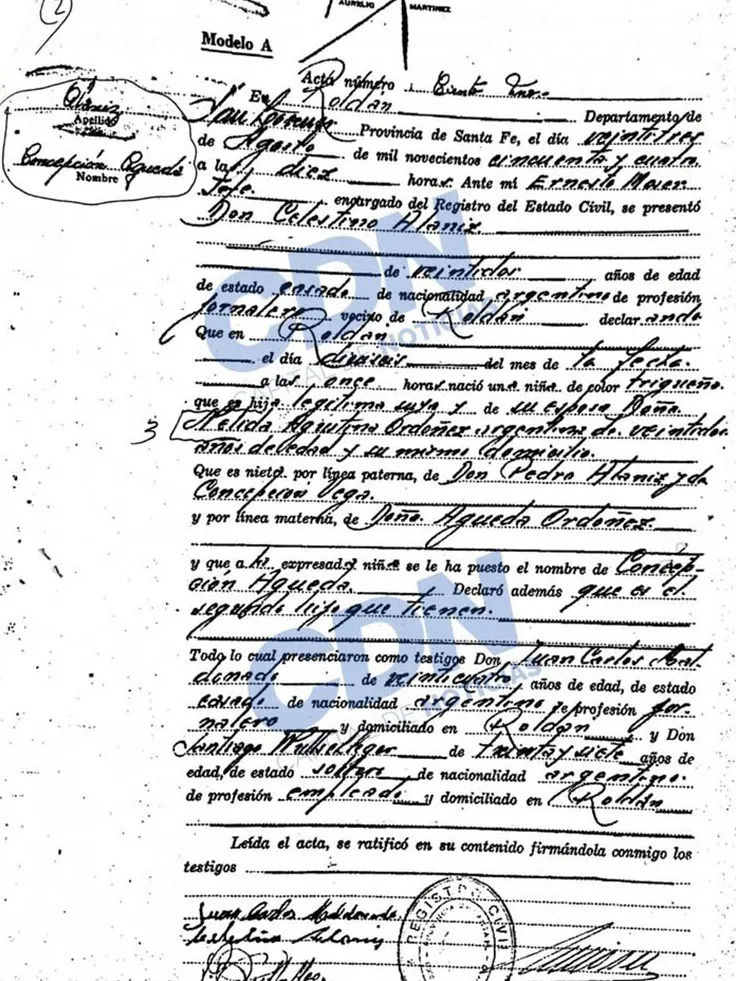 (2)
AURELIO MARTINEZ
Modelo A
Acta número Ciento
En Roldán
Alaniz
Apellido
San Lorenzo Departamento de
Provincia de Santa Fe, el día veintitres
de Agosto de mil novecientos cincuenta y cuatro
Concepción Agueda
Nombre
a las diez horas. Ante mi Ernesto Moser
Jefe encargado del Registro del Estado Civil, se presentó
Don Celestino Alaniz
de veintidos años de edad
de estado casado de nacionalidad argentino de profesión
jornalero vecino de Roldán declarando
Que en Roldán
el día dieciseis del mes de la fecha
a las once horas nació una niña de color trigueño
que es hija legitima suya y de su esposa Doña
3 Nelida Agustina Ordoñez argentina de veintidos
años de edad y su mismo domicilio.
Que es nieta por línea paterna, de Don Pedro Alaniz y de
Concepcion Vega.
y por línea materna, de Doña Agueda Ordoñez
y que a la expresada niña se le ha puesto el nombre de Concep-
cion Agueda Declaró además que es el
segundo hijo que tienen.
Todo lo cual presenciaron como testigos Don Juan Carlos Mal-
donado de veinticuatro años de edad, de estado
casado de nacionalidad argentino de profesión jor
nalero y domiciliado en Roldán y Don
Santiago de treinta y siete años de
edad, de estado soltero de nacionalidad argentino
de profesión empleado y domiciliado en Roldán
Leída el acta, se ratificó en su contenido firmándola conmigo los
testigos
Juan Carlos Maldonado
Celestino Alaniz
REGISTRO CIVIL
CDN
CAPITAL DE NOTICIAS
CDN
CAPITAL DE NOTICIAS